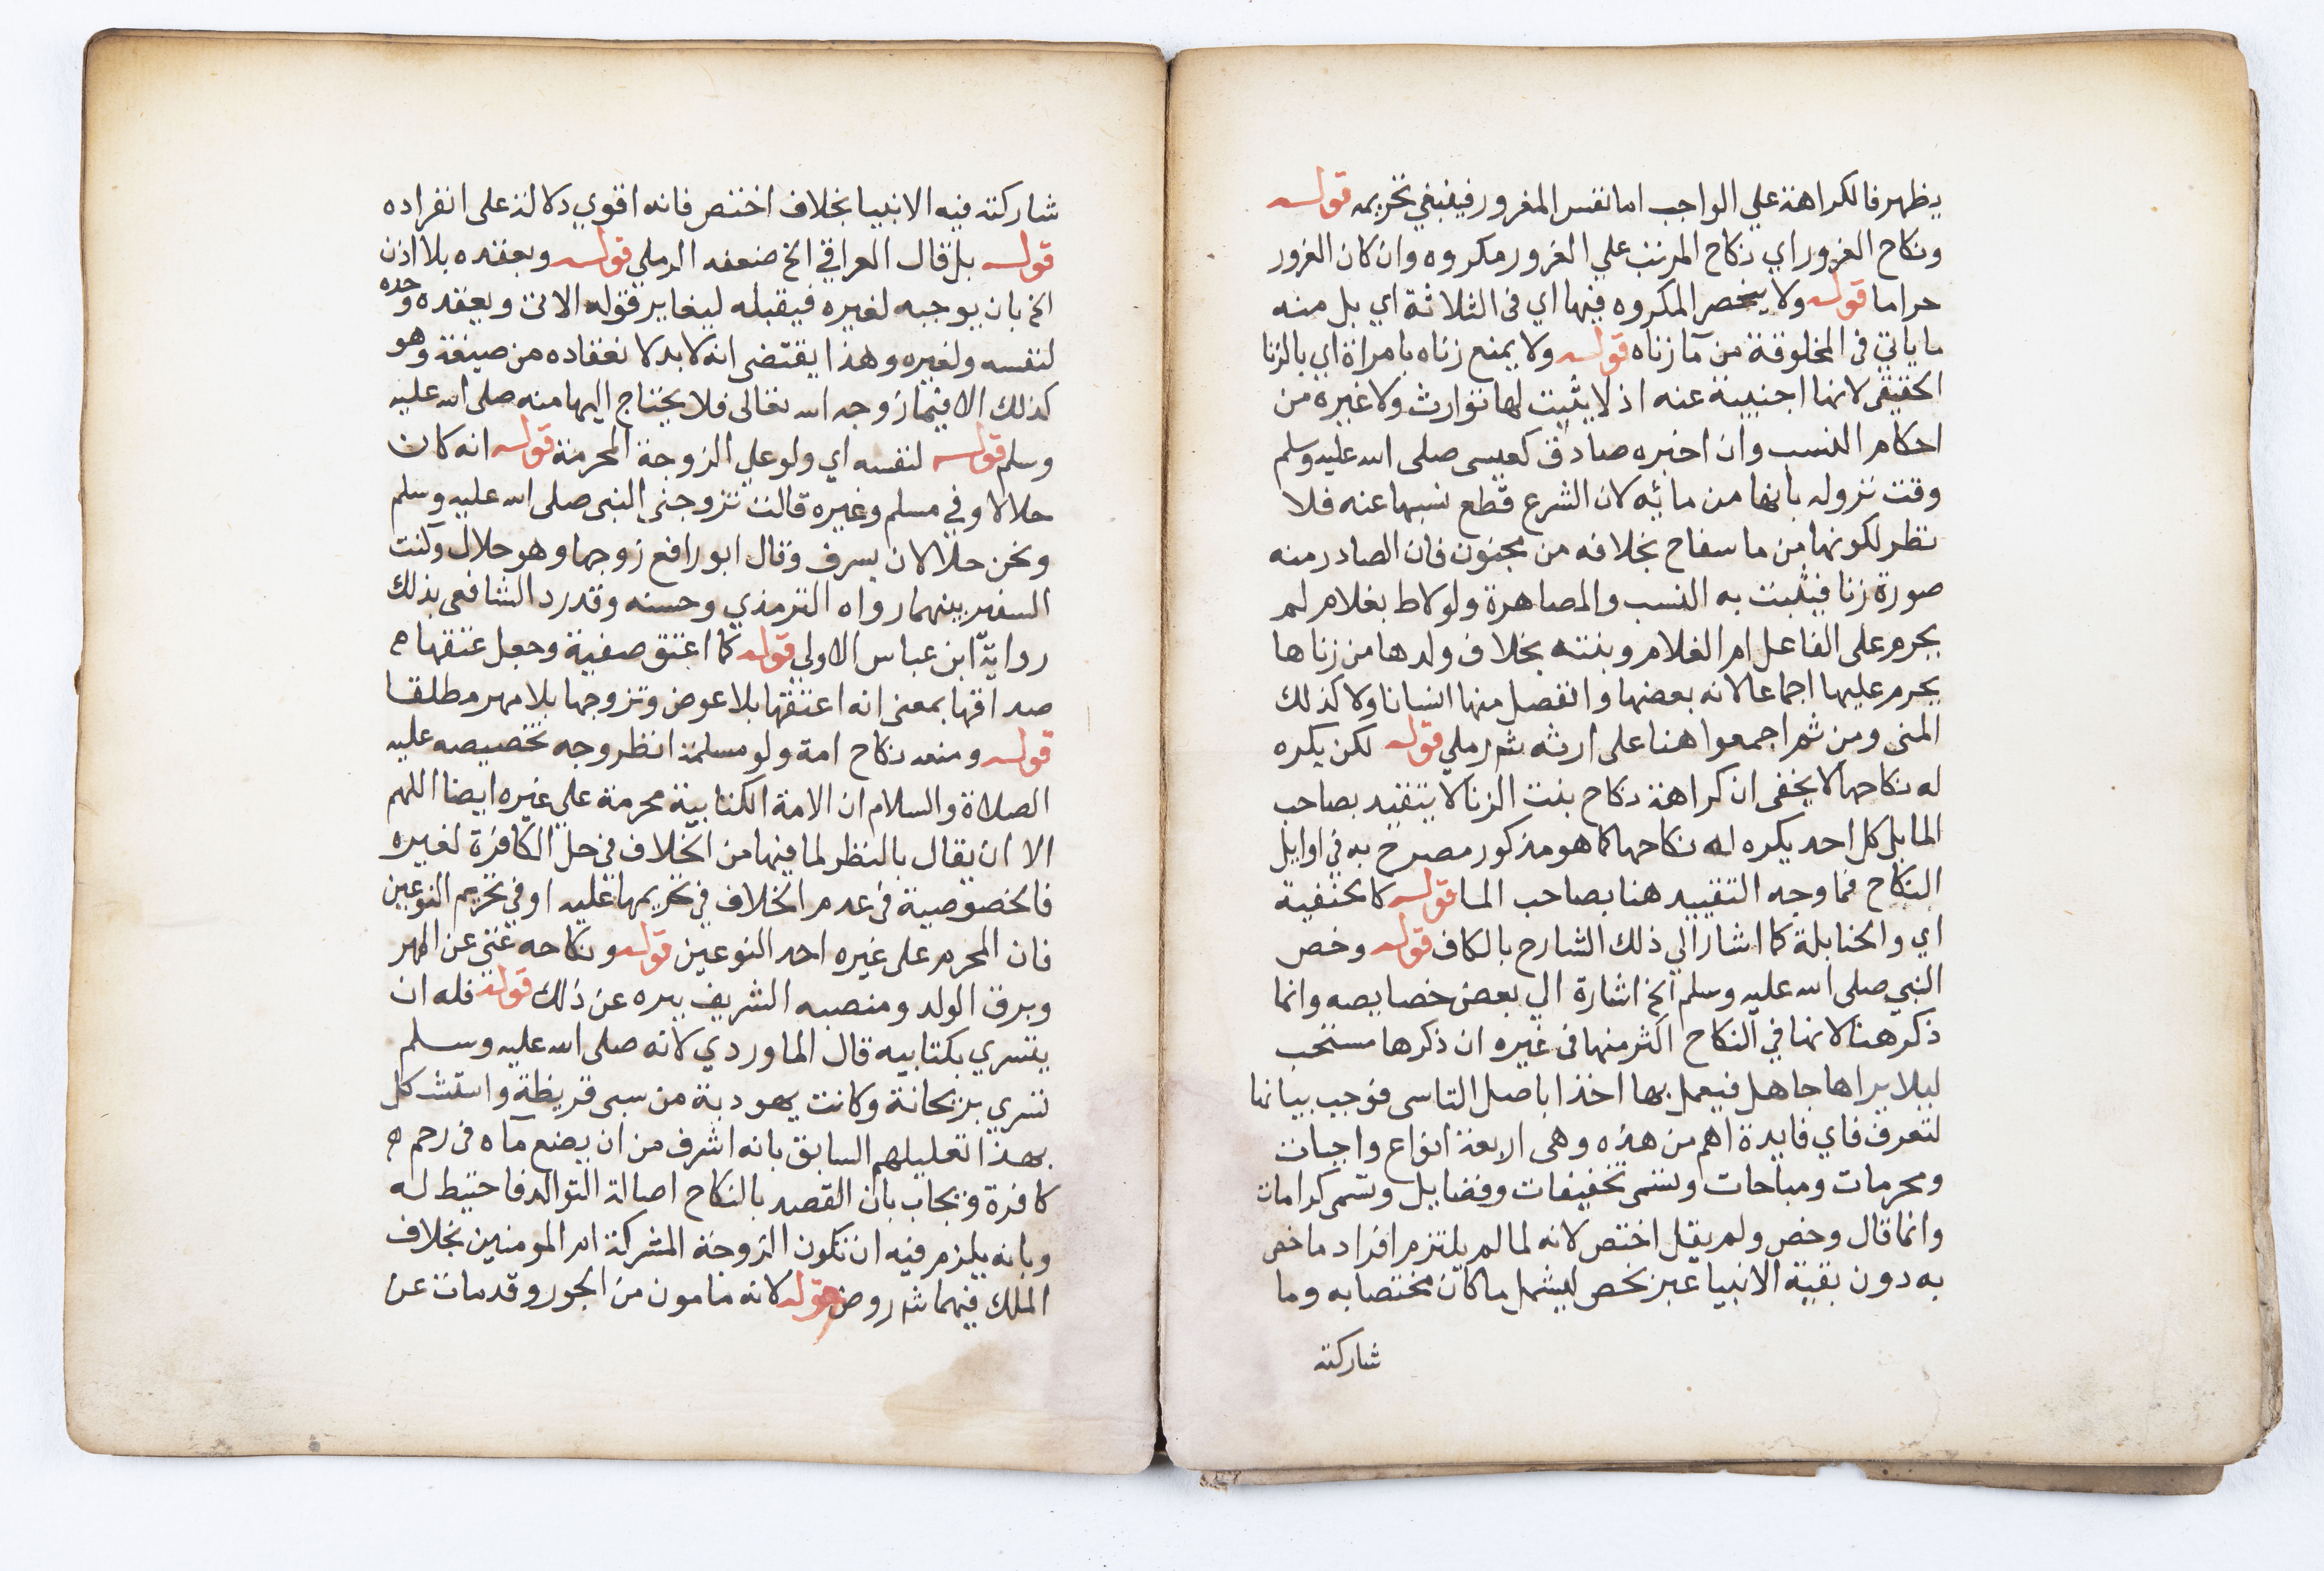 يظهر فالكراهة علي الواجب اما نفس المغرور فينبغي تحريمه قوله
ونكاح الغرور اي نكاح المرتب علي الغرور مكروه وان كان الغرور
حراما قوله ولا ينحصر المكروه فيها اي في الثلاثة اي بل منه
ما ياتي في المخلوقة من مآ زناه قوله ولا يمنع زناه بامراة اي بالزنا
الحقيقي لانها اجنبية عنه اذ لا يثبت لها توارث ولا غيره من
احكام النسب وان اخبره صادق كعيسى صلى الله عليه وسلم
وقت نزوله بانها من مائه لان الشرع قطع نسبها عنه فلا
نظر لكونها من ما سفاح بخلافه من مجنون فان الصادر منه
صورة زنا فيثبت به النسب والمصاهرة ولو لاط بغلام لم
يحرم على الفاعل ام الغلام وبنته بخلاف ولدها من زناها
يحرم عليها اجماعا لانه بعضها وانفصل منها انسانا ولا كذلك
المني ومن ثم اجمعوا هنا على ارثه شم رملي قوله لكن يكره
له نكاحها لا يخفى ان كراهة نكاح بنت الزنا لا يتقيد بصاحب
الما بل كل احد يكره له نكاحها كما هو مذكور مصرح به في اوايل
النكاح فما وجه التقييد هنا بصاحب الما قوله كالحنفية
اي والحنابلة كما اشار الي ذلك الشارح بالكاف قوله وخص
النبي صلى الله عليه وسلم الخ اشارة الي بعض خصايصه وانما
ذكر هنا لانها في النكاح اكثر منها في غيره ان ذكرها مستحب
ليلا يراها جاهل فيعمل بها اخذا باصل التاسى فوجب بيانها
لتعرف فاي فايدة اهم من هذه وهى اربعة انواع واجبات
ومحرمات ومباحات وتسمى تخفيفات وفضايل وتسمى كرامات
وانما قال وخص ولم يقل اختص لانه لما لم يلتزم افراد ما خص
به دون بقية الانبيا عبر بخص ليشمل ما كان مختصا به وما
شاركته
شاركته فيه الانبيا بخلاف اختص فانه اقوي دلالة على انفراده
قوله بل قال العراقي الخ ضعفه الرملي قوله وبعقده بلا اذن
الخ بان يوجبه لغيره فيقبله ليغاير قوله الاتى وبعقده وحده
لنفسه ولغيره وهذا يقتضى انه لا بد لانعقاده من صيغة وهو
كذلك الا فيما زوجه الله تعالى فلا يحتاج اليها منه صلى الله عليه
وسلم قوله لنفسه اي ولو علي الزوجة المحرمة قوله انه كان
حلالا وفي مسلم وغيره قالت تزوجني النبى صلى الله عليه وسلم
ونحن حلالان بسرف وقال ابو رافع زوجها وهو حلال وكنت
السفير بينهما رواه الترمذي وحسنه وقد رد الشافعى بذلك
رواية ابن عباس الاولي قوله كما اعتق صفية وجعل عتقها ه
صداقها بمعنى انه اعتقها بلا عوض وتزوجها بلا مهر مطلقا
قوله ومنعه نكاح امة ولو مسلمة انظر وجه تخصيصه عليه
الصلاة والسلام ان الامة الكتابية محرمة علي غيره ايضا اللهم
الا ان يقال بالنظر لما فيها من الخلاف في حل الكافرة لغيره
فالخصوصية في عدم الخلاف في تحريمها عليه او في تحريم النوعين
فان المحرم على غيره احد النوعين قوله ونكاحه غنى عن المهر
وبرق الولد ومنصبه الشريف يبره عن ذلك قوله فله ان
يتسري بكتابيه قال الماوردي لانه صلى الله عليه وسلم
تسري بريحانة وكانت يهودية من سبى قريظة واستشكل
بهذا تعليلهم السابق بانه اشرف من ان يضع مآه في رحم ه
كافرة ويجاب بان القصد بالنكاح اصالة التوالد فاحتيط له
وبانه يلزم فيه ان تكون الزوجة المشركة ام المومنين بخلاف
الملك فيهما شم روض قوله لانه مامون من الجور وقد مات عن